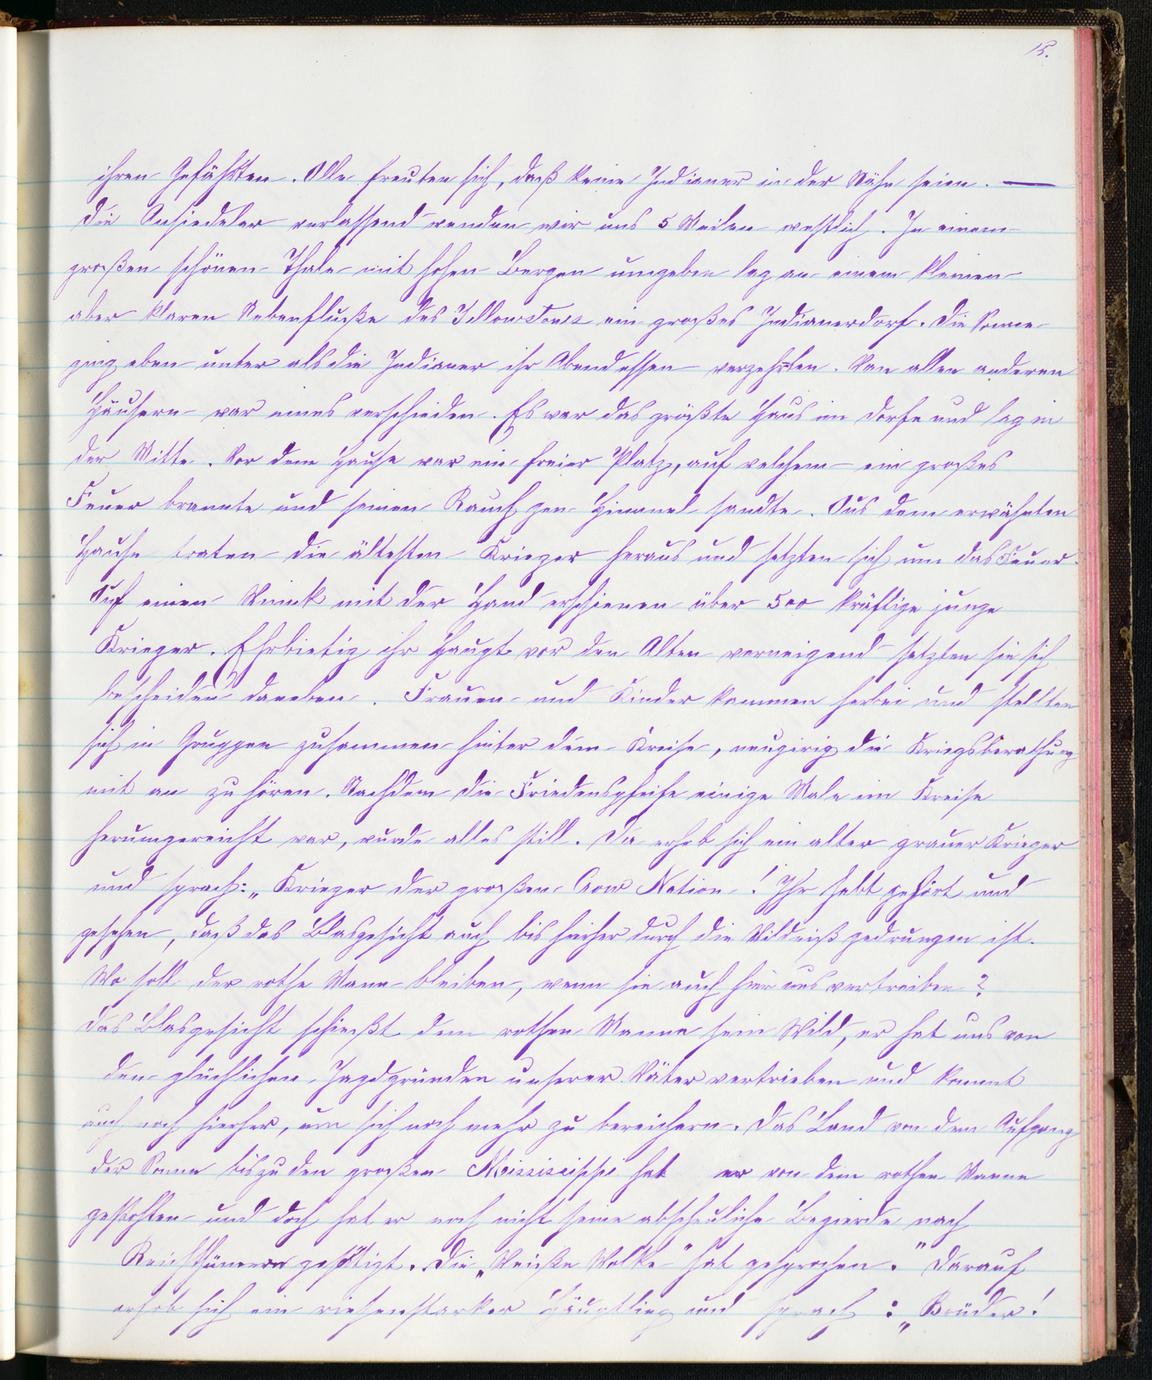 15.
ihren Gefährten. Alle freuten sich, daß keine Indianer in der Nähe seien. —
Die Ansiedeler verlassend wenden wir uns 5 Meilen westlich. In einem
großen schönen Thale mit hohen Bergen umgeben lag an einem kleinen
aber klaren Nebenfluße des Yellowstones ein großes Indianerdorf. Die Sonne
ging eben unter als die Indianer ihr Abendessen verzehrten. Von allen anderen
Häusern war eines verschieden. Es war das größte Haus im Dorfe und lag in
der Mitte. Vor dem Hause war ein freier Platz, auf welchem ein großes
Feuer brannte und seinen Rauch gen Himmel sandte. Aus dem erwähnten
Hause traten die ältesten Krieger heraus und setzten sich um das Feuer.
Auf einen Wink mit der Hand erschienen über 500 kräftige junge
Krieger. Ehrbietig ihr Haupt vor den Alten verneigend setzten sie sich
bescheiden daneben. Frauen und Kinder kammen herbei und stellten
sich in Gruppen zusammen hinter dem Kreise, neugirig die Kriegsberathung
mit an zu hören. Nachdem die Friedenspfeife einige Male im Kreise
herumgereicht war, wurde alles still. Da erhob sich ein alter grauer Krieger
und sprach: „Krieger der großen Crow Nation! Ihr habt gehört und
gesehen, daß das Blasgesicht auch bis hierher durch die Wildniß gedrungen ist.
Wo soll der rothe Mann bleiben, wenn sie auch hier uns vertreiben?
Das Blasgesicht schießt dem rothen Manne sein Wild, er hat uns von
den glücklichen Jagdgründen unserer Väter vertrieben und kommt
auch noch hierher, um sich noch mehr zu bereichern. Das Land von dem Aufgang
der Sonne bis zu den großen Mississippi hat er von dem rothen Manne
gestohlen und doch hat er noch nicht seine abscheuliche Begierde nach
Reichthümern gesättigt. Die „Weiße Wolke" hat gesprochen." Darauf
erhob sich ein riesenstarker Häuptling und sprach: „Brüder!